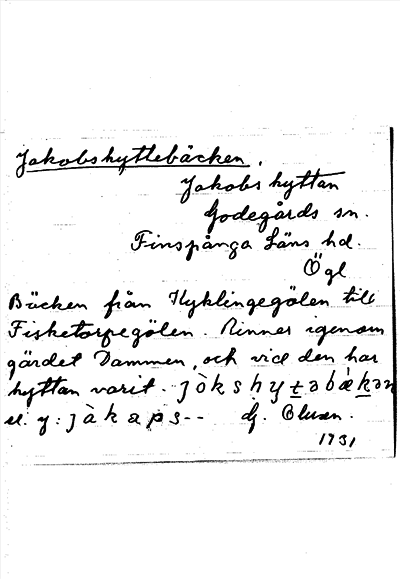 Jakobshyttebäcken.
Jakobshyttan
Godegårds sn.
Finspånga Läns hd.
Ögl
Bäcken från Kyklingegölen till
Fisketorpegölen. Rinner igenom
gärdet Dammen, och vid den har
hyttan varit. jòkshytəbäkən
el. y: jàkaps--
1931